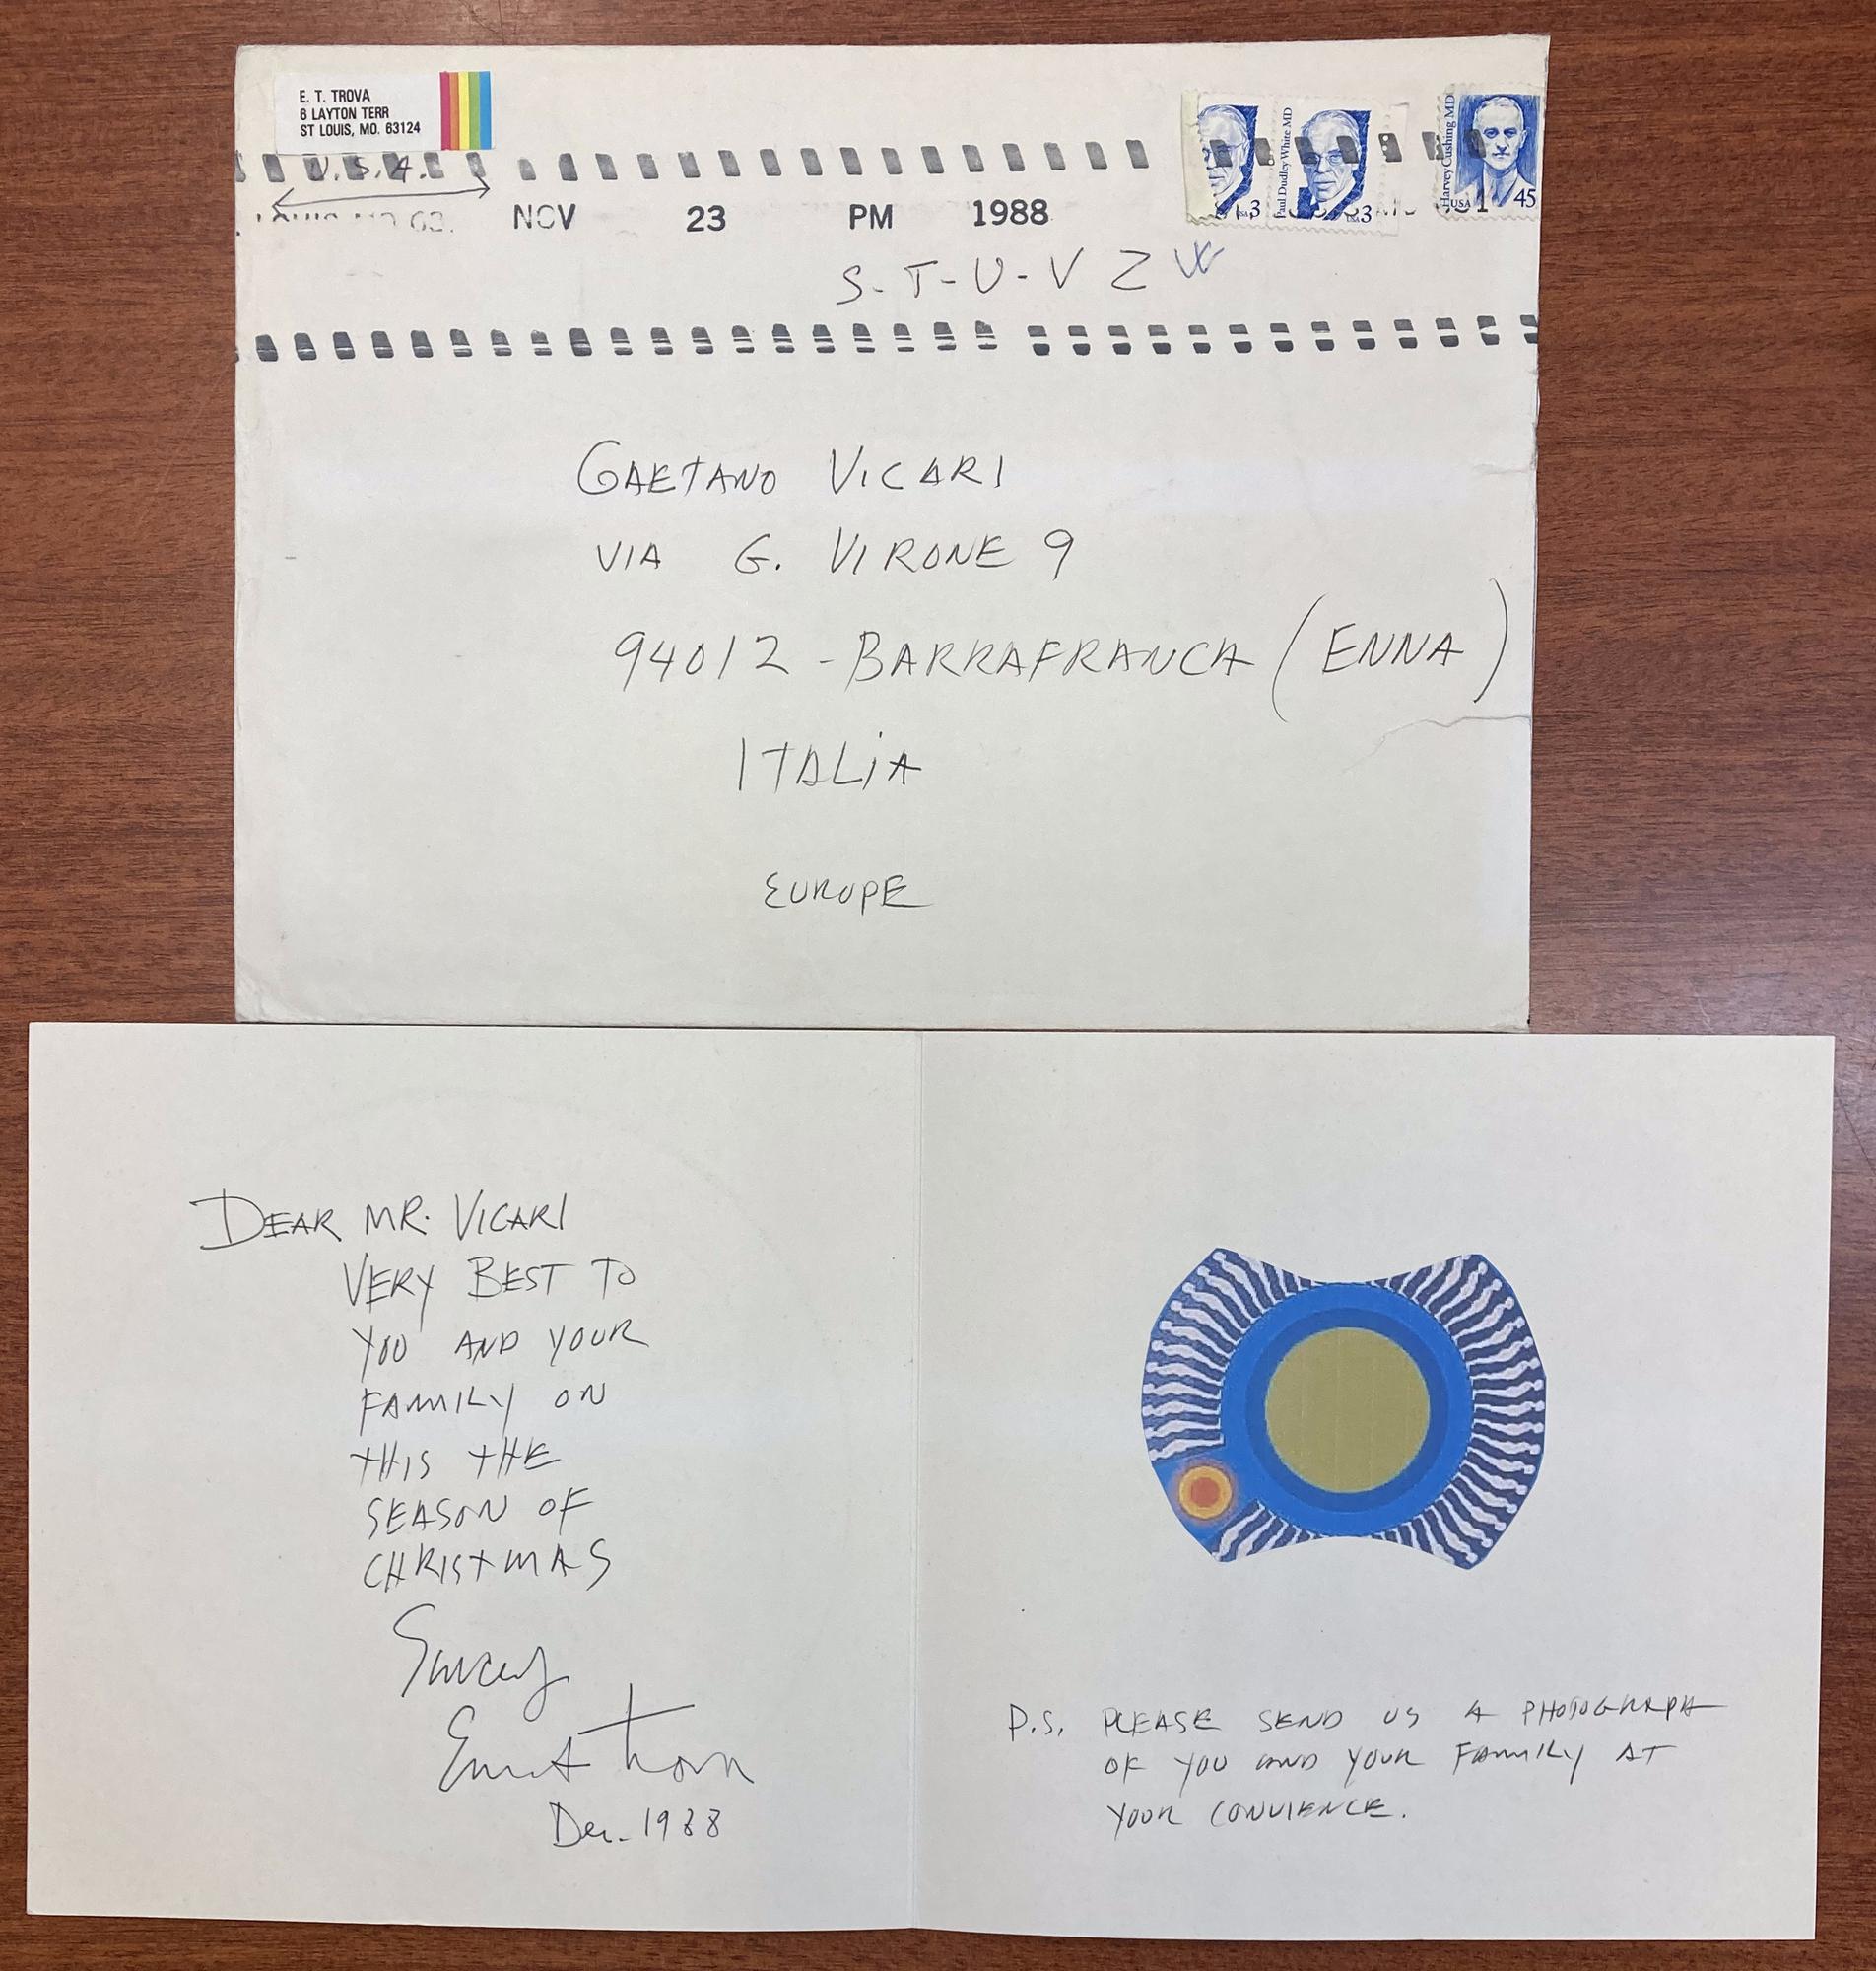 E. T. TROVA
6 LAYTON TERR
ST LOUIS, MO. 63124
U.S.A.
NOV 23 PM 1988
USA 3
Paul Dudley White MD
USA 3
Harvey Cushing MD
USA 45
S-T-U-V Z W
GAETANO VICARI
VIA G. VIRONE 9
94012 - BARRAFRANCA (ENNA)
ITALIA
EUROPE
DEAR MR. VICARI
VERY BEST TO
YOU AND YOUR
FAMILY ON
THIS THE
SEASON OF
CHRISTMAS
Ernest Trova
Dec. 1988
P.S. PLEASE SEND US A PHOTOGRAPH
OF YOU AND YOUR FAMILY AT
YOUR CONVIENCE.